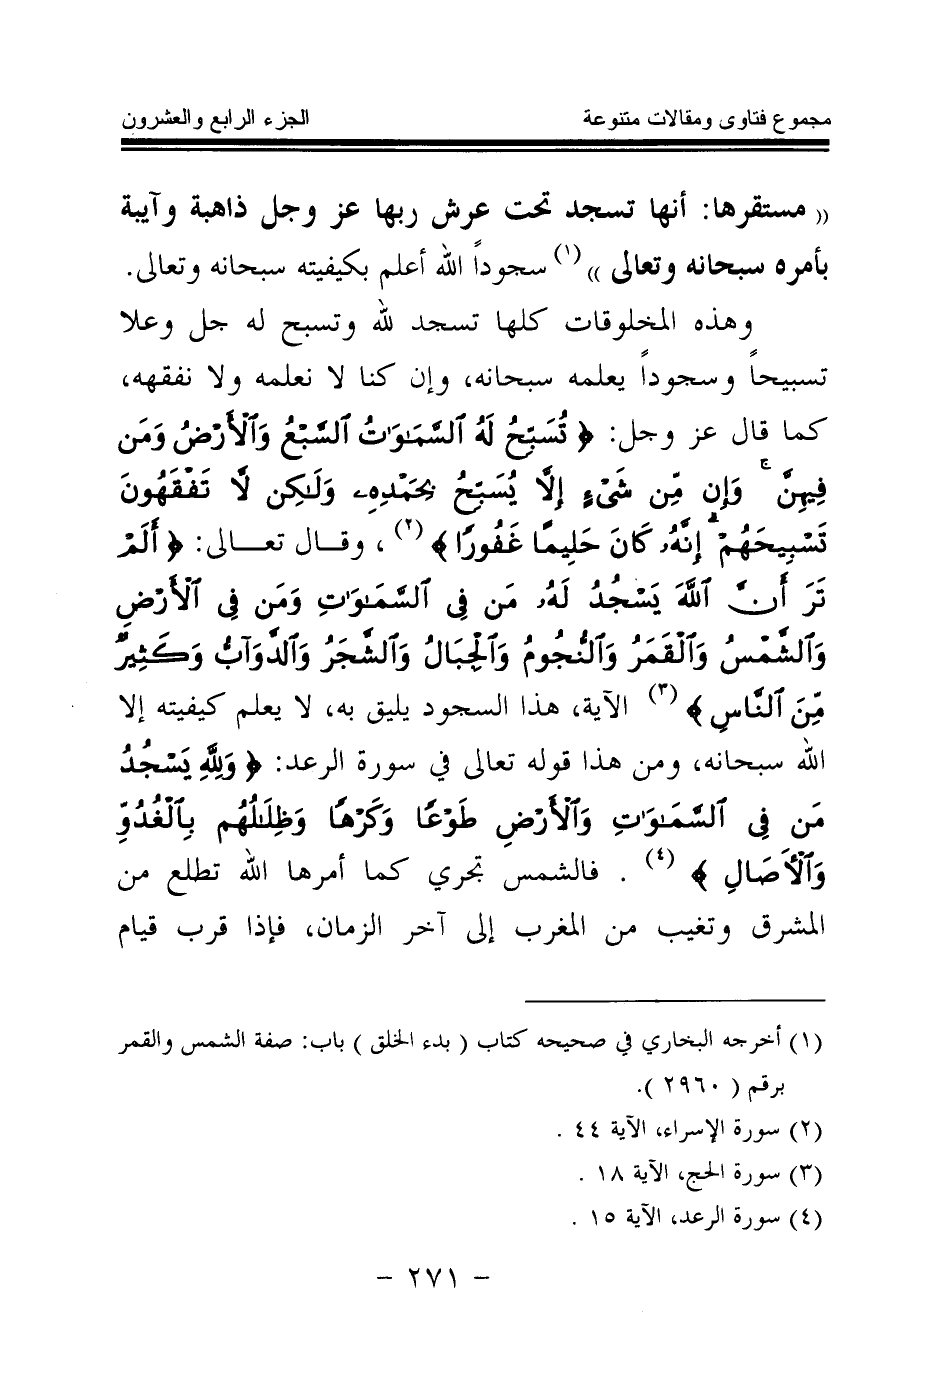 مجموع فتاوى ومقالات متنوعة الجزء الرابع والعشرون
(( مستقرها: أنها تسجد تحت عرش ربها عز وجل ذاهبة وآيبة
بأمره سبحانه وتعالى ))(١) سجوداً الله أعلم بكيفيته سبحانه وتعالى.
وهذه المخلوقات كلها تسجد لله وتسبح له جل وعلا
تسبيحاً وسجوداً يعلمه سبحانه، وإن كنا لا نعلمه ولا نفقهه،
كما قال عز وجل: ﴿ تُسَبِّحُ لَهُ ٱلسَّمَـٰوَٰتُ ٱلسَّبْعُ وَٱلْأَرْضُ وَمَن
فِيهِنَّ ۚ وَإِن مِّن شَىْءٍ إِلَّا يُسَبِّحُ بِحَمْدِهِۦ وَلَـٰكِن لَّا تَفْقَهُونَ
تَسْبِيحَهُمْ ۗ إِنَّهُۥ كَانَ حَلِيمًا غَفُورًا ﴾(٢) ، وقـال تعـالى: ﴿ أَلَمْ
تَرَ أَنَّ ٱللَّهَ يَسْجُدُ لَهُۥ مَن فِى ٱلسَّمَـٰوَٰتِ وَمَن فِى ٱلْأَرْضِ
وَٱلشَّمْسُ وَٱلْقَمَرُ وَٱلنُّجُومُ وَٱلْجِبَالُ وَٱلشَّجَرُ وَٱلدَّوَآبُّ وَكَثِيرٌ
مِّنَ ٱلنَّاسِ ﴾(٣) الآية، هذا السجود يليق به، لا يعلم كيفيته إلا
الله سبحانه، ومن هذا قوله تعالى في سورة الرعد: ﴿ وَلِلَّهِ يَسْجُدُ
مَن فِى ٱلسَّمَـٰوَٰتِ وَٱلْأَرْضِ طَوْعًا وَكَرْهًا وَظِلَـٰلُهُم بِٱلْغُدُوِّ
وَٱلْـَٔاصَالِ ﴾ (٤) . فالشمس تجري كما أمرها الله تطلع من
المشرق وتغيب من المغرب إلى آخر الزمان، فإذا قرب قيام
(١) أخرجه البخاري في صحيحه كتاب ( بدء الخلق ) باب: صفة الشمس والقمر
برقم ( ٢٩٦٠ ).
(٢) سورة الإسراء، الآية ٤٤ .
(٣) سورة الحج، الآية ١٨ .
(٤) سورة الرعد، الآية ١٥ .
- ٢٧١ -